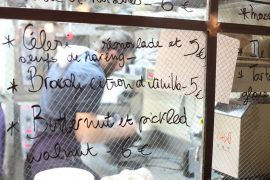 6€
* Céleri rémoulade et 5€
œufs de hareng
* Brocoli citron et vanille - 5€
* Butternut et pickled
walnut 6€
* Tart